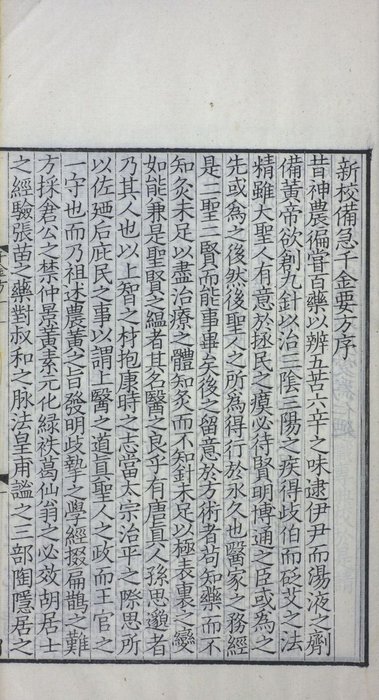 新校備急千金要方序
昔神農徧嘗百藥以辨五苦六辛之味逮伊尹而湯液之劑
備黃帝欲創九針以治三陰三陽之疾得歧伯而砭艾之法
精雖大聖人有意於拯民之瘼必待賢明博通之臣或為之
先或為之後然後聖人之所為得行於永久也醫家之務經
是二聖二賢而能事畢矣後之留意於方術者苟知藥而不
知灸未足以盡治療之體知灸而不知針未足以極表裏之變
如能兼是聖賢之緼者其名醫之良乎有唐真人孫思邈者
乃其人也以上智之材抱康時之志當太宗治平之際思所
以佐廼后庶民之事以謂上醫之道真聖人之政而王官之
一守也而乃祖述農黃之旨發明歧摯之學經掇扁鵲之難
方採倉公之禁仲景黃素元化綠袟葛仙翁之必效胡居士
之經驗張苗之藥對叔和之脉法皇甫謐之三部陶隱居之